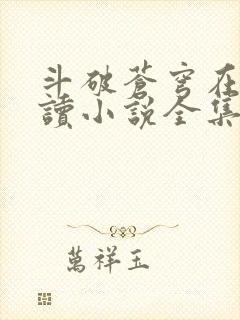 斗破蒼穹在
讀小說全集
萬祥玉